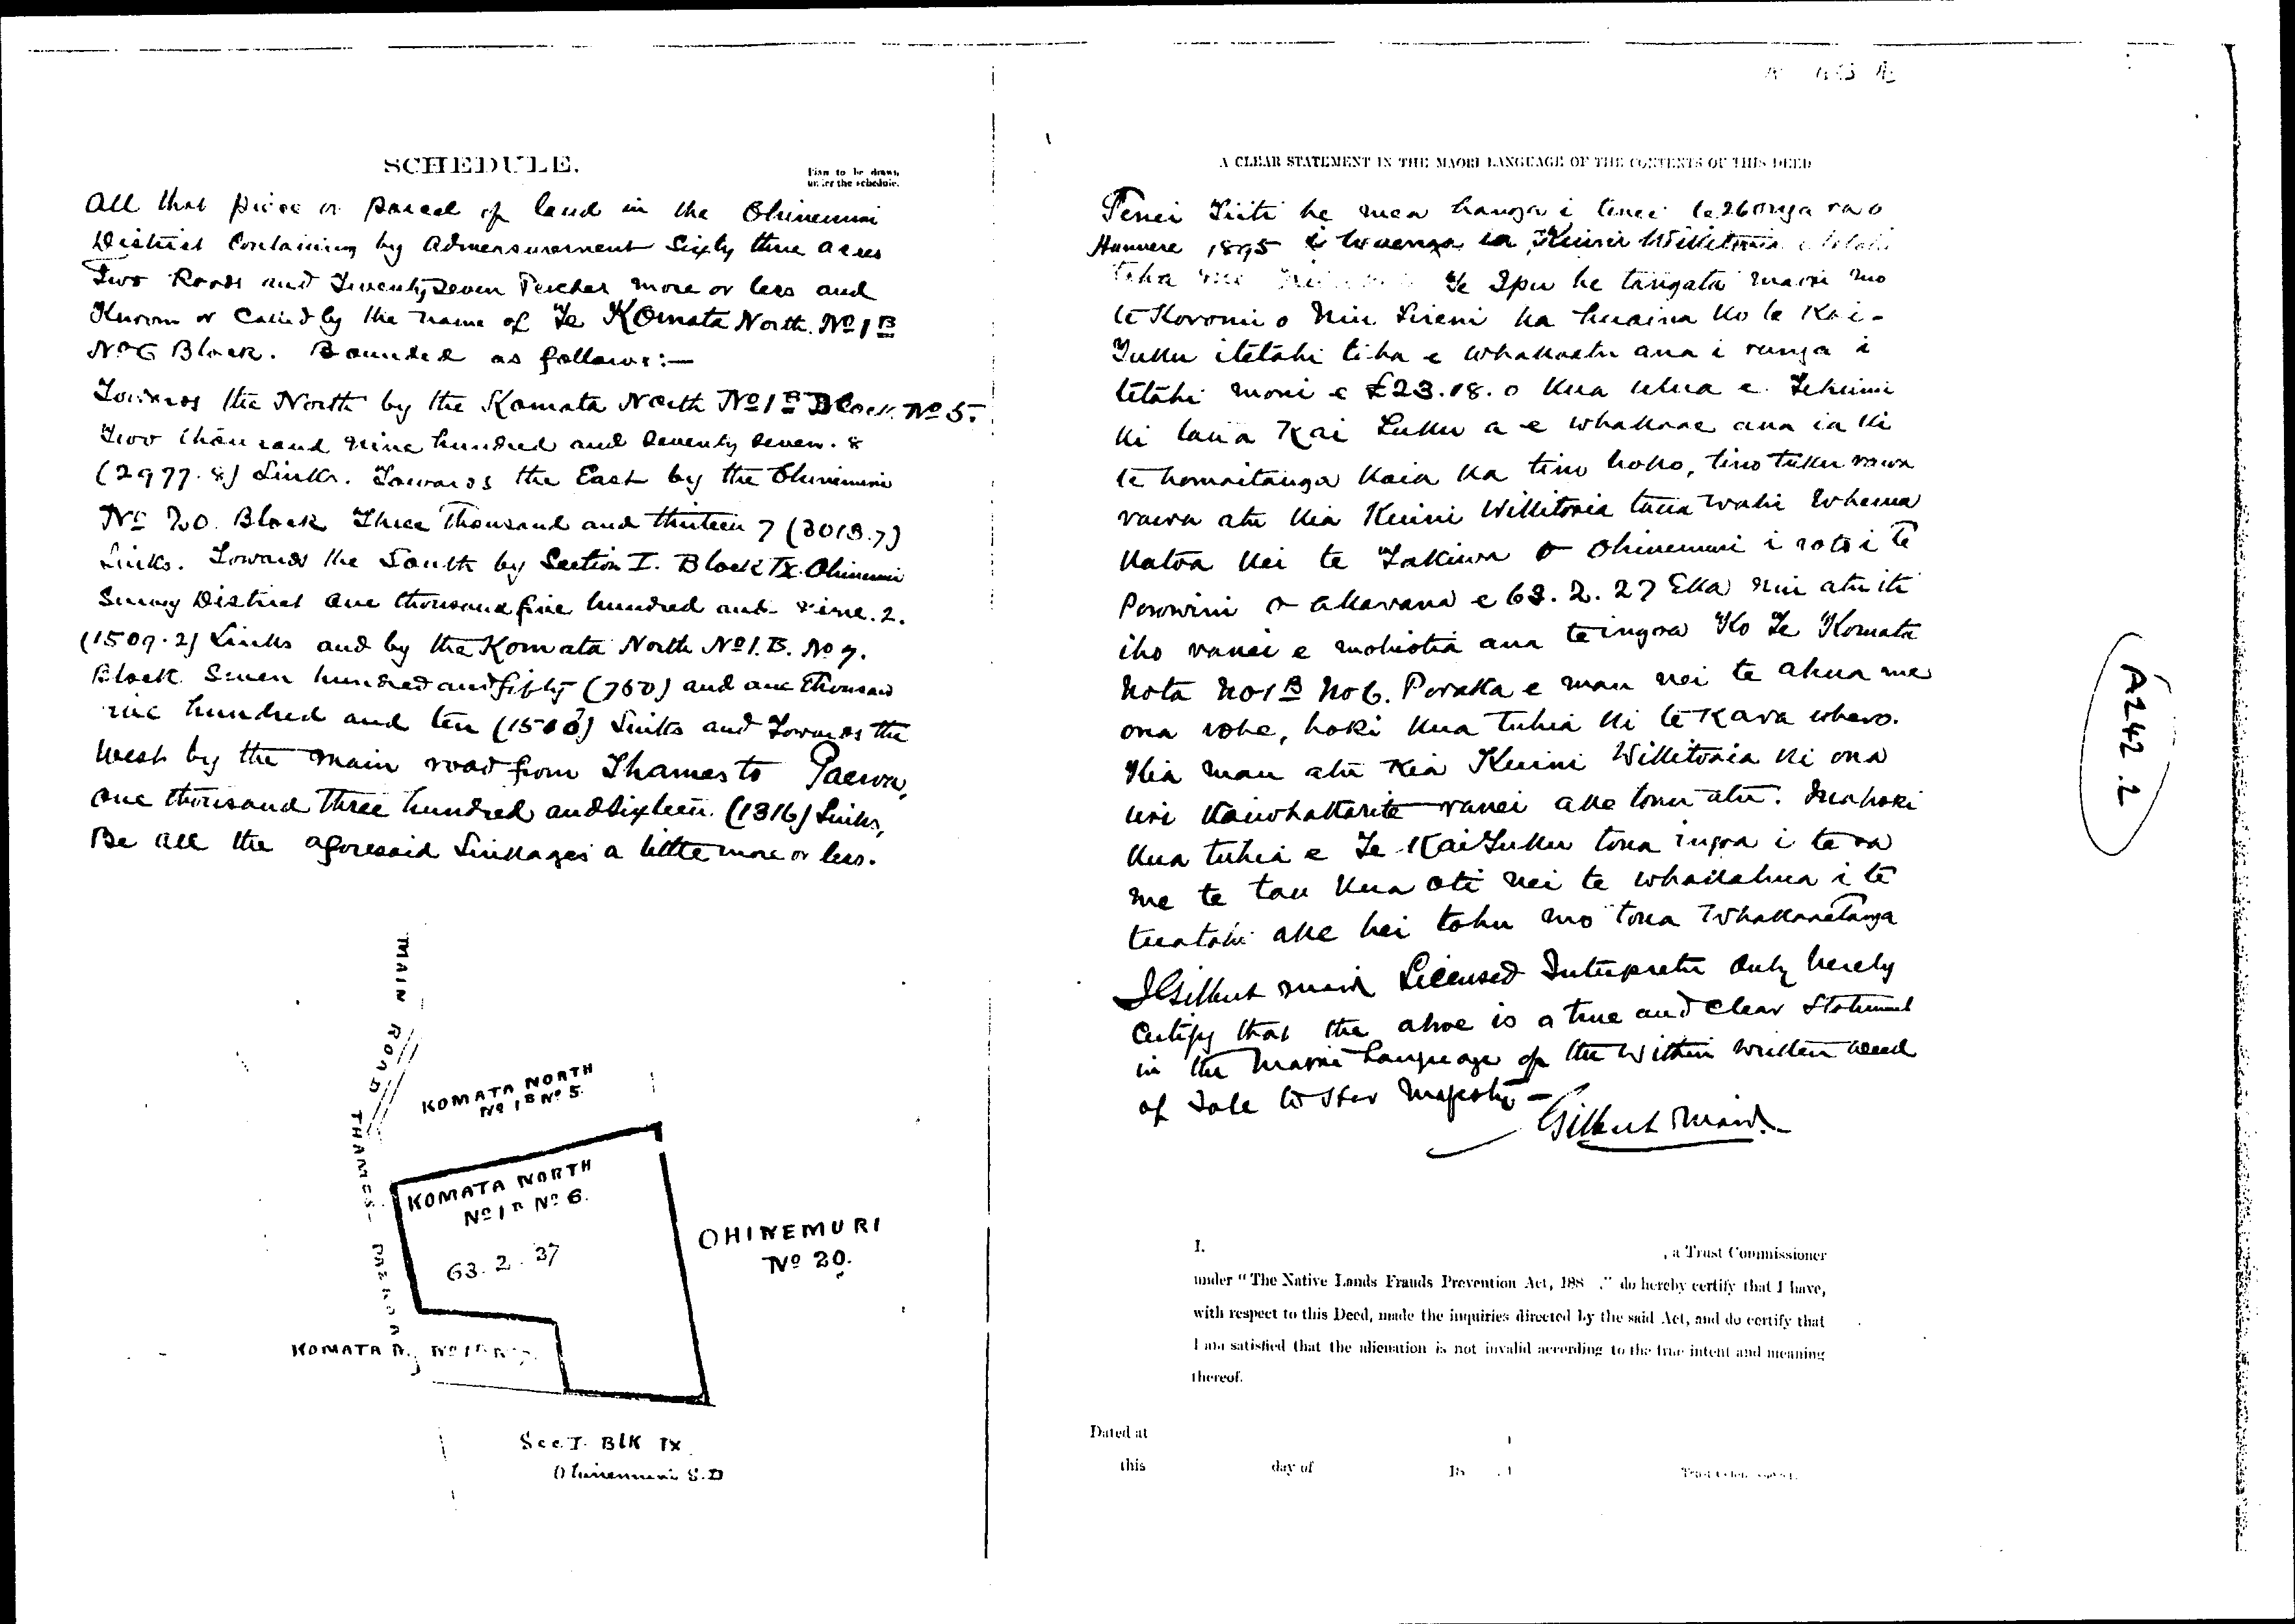 SCHEDULE.
Plan to be drawn
under the schedule.
All that piece or parcel of land in the Ohinemuri
District Containing by Admeasurement Sixty three acres
Two Roods and Twenty Seven Perches more or less and
Known or Called by the name of Te Komata North No 1 B
No 6 Block. Bounded as follows:—
Towards the North by the Komata North No 1 B Block No 5.
Two thousand nine hundred and Seventy Seven. 8
(2977.8) Links. Towards the East by the Ohinemuri
No 20. Block Three Thousand and thirteen 7 (3013.7)
Links. Towards the South by Section I. Block IX. Ohinemuri
Survey District One thousand five hundred and nine. 2.
(1509.2) Links and by the Komata North No 1. B. No 7.
Block Seven hundred and fifty (750) and one Thousand
five hundred and ten Links and Towards the
West by the main road from Thames to Paeroa,
One thousand Three hundred and Sixteen. (1316) Links,
Be all the aforesaid Linkages a little more or less.
MAIN ROAD THAMES- PAEROA
KOMATA NORTH
No 1 B No 5.
KOMATA NORTH
No 1 B No 6.
63. 2. 27
OHINEMURI
No 20.
KOMATA N. No 1 B No 7.
Sec. I. BlK IX
Ohinemuri S.D
A CLEAR STATEMENT IN THE MAORI LANGUAGE OF THE CONTENTS OF THIS DEED
Tenei Tiiti he mea hanga i tenei te 26 o nga ra o
Hanuere 1895 i waenga ia Kuini Wikitoria i tetahi
taha me Te Ipu he tangata maori no
te Koroni o Niu Tireni ka huaina ko te Kai-
Tuku i tetahi taha e whakaatu ana i runga i
tetahi moni e £23.18.0 kua utua e Te Kuini
ki taua Kai Tuku a e whakaae ana ia ki
te homaitanga kaia ka tino hoko, tino tuku rawa
rawa atu kia Kuini Wikitoria taua wahi whenua
katoa kei te Takiwa o Ohinemuri i roto i te
Porowini o Akarana e 63. 2. 27 Eka nui atu iti
iho ranei e mohiotia ana te ingoa Ko Te Komata
Nota No 1 B No 6. Poraka e mau nei te ahua me
ona rohe, hoki kua tuhia ki te Kara whero.
Kia mau atu kia Kuini Wikitoria ki ona
uri Kaiwhakarite ranei ake tonu atu. Ina hoki
kua tuhia e Te Kai Tuku tona ingoa i te ra
me te tau kua oti nei te whakahua i te
tuatahi ake hei tohu mo tona Whakaaetanga
I Gilbert Mair Licensed Interpreter duly hereby
Certify that the above is a true and clear statement
in the Maori Language of the within written deed
of Sale to Her Majesty —
Gilbert Mair.
I. , a Trust Commissioner
under "The Native Lands Frauds Prevention Act, 188 ." do hereby certify that I have,
with respect to this Deed, made the inquiries directed by the said Act, and do certify that
I am satisfied that the alienation is not invalid according to the true intent and meaning
thereof.
Dated at
this day of 18
Trust Commissioner.
A242.2